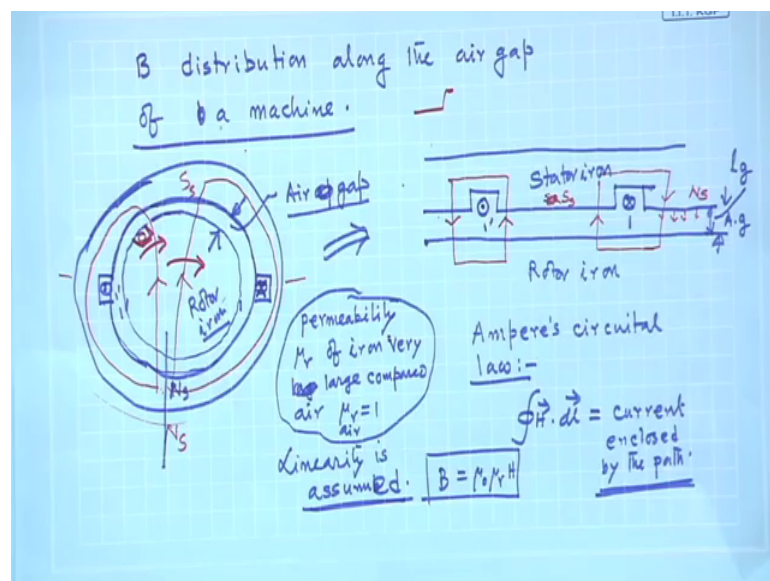 I.I.T. KGP
B distribution along the air gap
of a machine.
Ss
Air gap
Rotor
iron
Ns
Ns
Stator iron
Ss
Ns
lg
A.g
1'
1
Rotor iron
permeability
μr of iron very
large compared
air μr = 1
air
Linearity is
assumed.
B = μ0 μr H
Ampere's circuital
law:-
∮H⃗ . dl⃗ = current
enclosed
by the path.